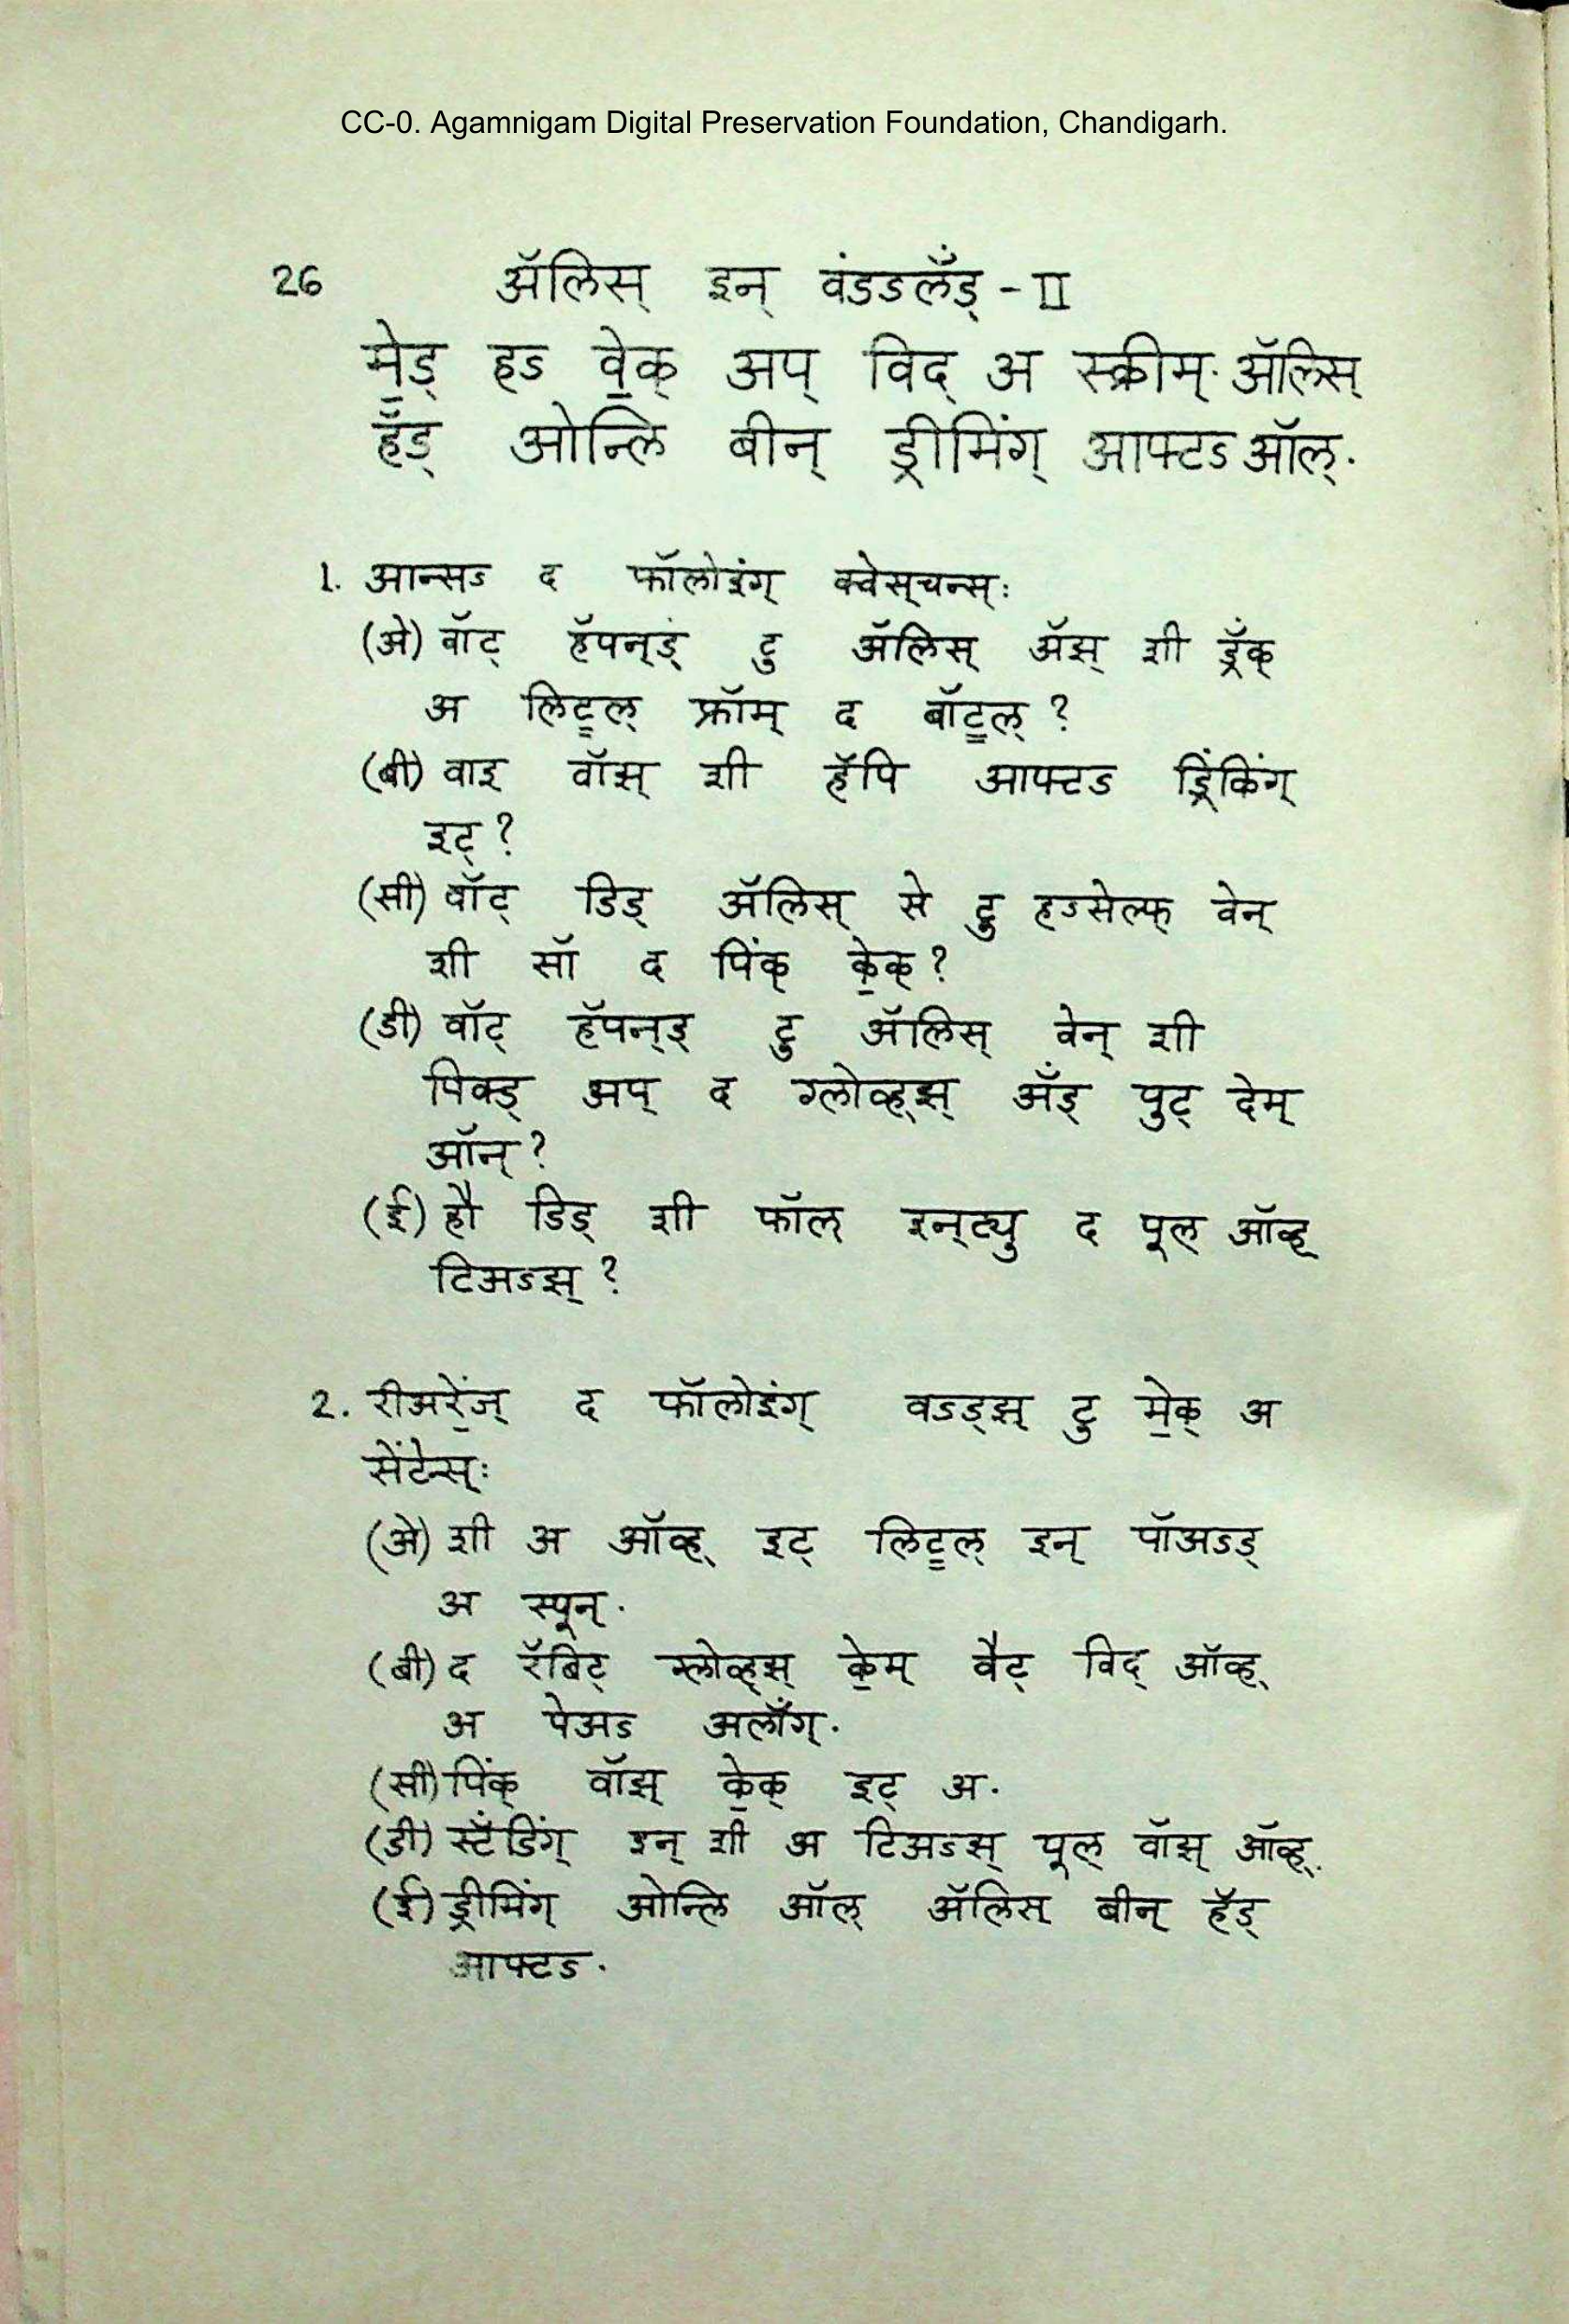 CC-0. Agamnigam Digital Preservation Foundation, Chandigarh.
26 ॲलिस् इन् वंडऽलँड् - II
मे॒ड् हऽ वे॒क् अप् विद् अ स्क्रीम्. ॲलिस्
हॅड् ओन्लि बीन् ड्रीमिंग् आफ्टऽ ऑल्.
1. आन्सऽ द फॉलोइंग् क्वेस्चन्स्:
(अे) वॉट् हॅपन्ड् टु ॲलिस् ॲझ् शी ड्रँक्
अ लिट्ल् फ्रॉम् द बॉट्ल् ?
(बी) वाइ वॉझ् शी हॅपि आफ्टऽ ड्रिंकिंग्
इट् ?
(सी) वॉट् डिड् ॲलिस् से टु हऽसेल्फ् वेन्
शी सॉ द पिंक् के॒क् ?
(डी) वॉट् हॅपन्ड् टु ॲलिस् वेन् शी
पिक्ड् अप् द ग्लोव्ह्झ् अँड् पुट् देम्
ऑन् ?
(ई) हौ डिड् शी फॉल् इन्ट्यु द पूल् ऑव्ह्
टिअऽझ् ?
2. रीअरें॒ज् द फॉलोइंग् वऽड्झ् टु मे॒क् अ
सेंटेन्स्:
(अे) शी अ ऑव्ह् इट् लिट्ल् इन् पॉअऽड्
अ स्पून्.
(बी) द रॅबिट् ग्लोव्ह्झ् के॒म् वैट् विद् ऑव्ह्
अ पेअऽ अलाँग्.
(सी) पिंक् वॉझ् के॒क् इट् अ.
(डी) स्टँडिंग् इन् शी अ टिअऽस् पूल् वॉझ् ऑव्ह्.
(ई) ड्रीमिंग् ओन्लि ऑल् ॲलिस् बीन् हॅड्
आफ्टऽ.